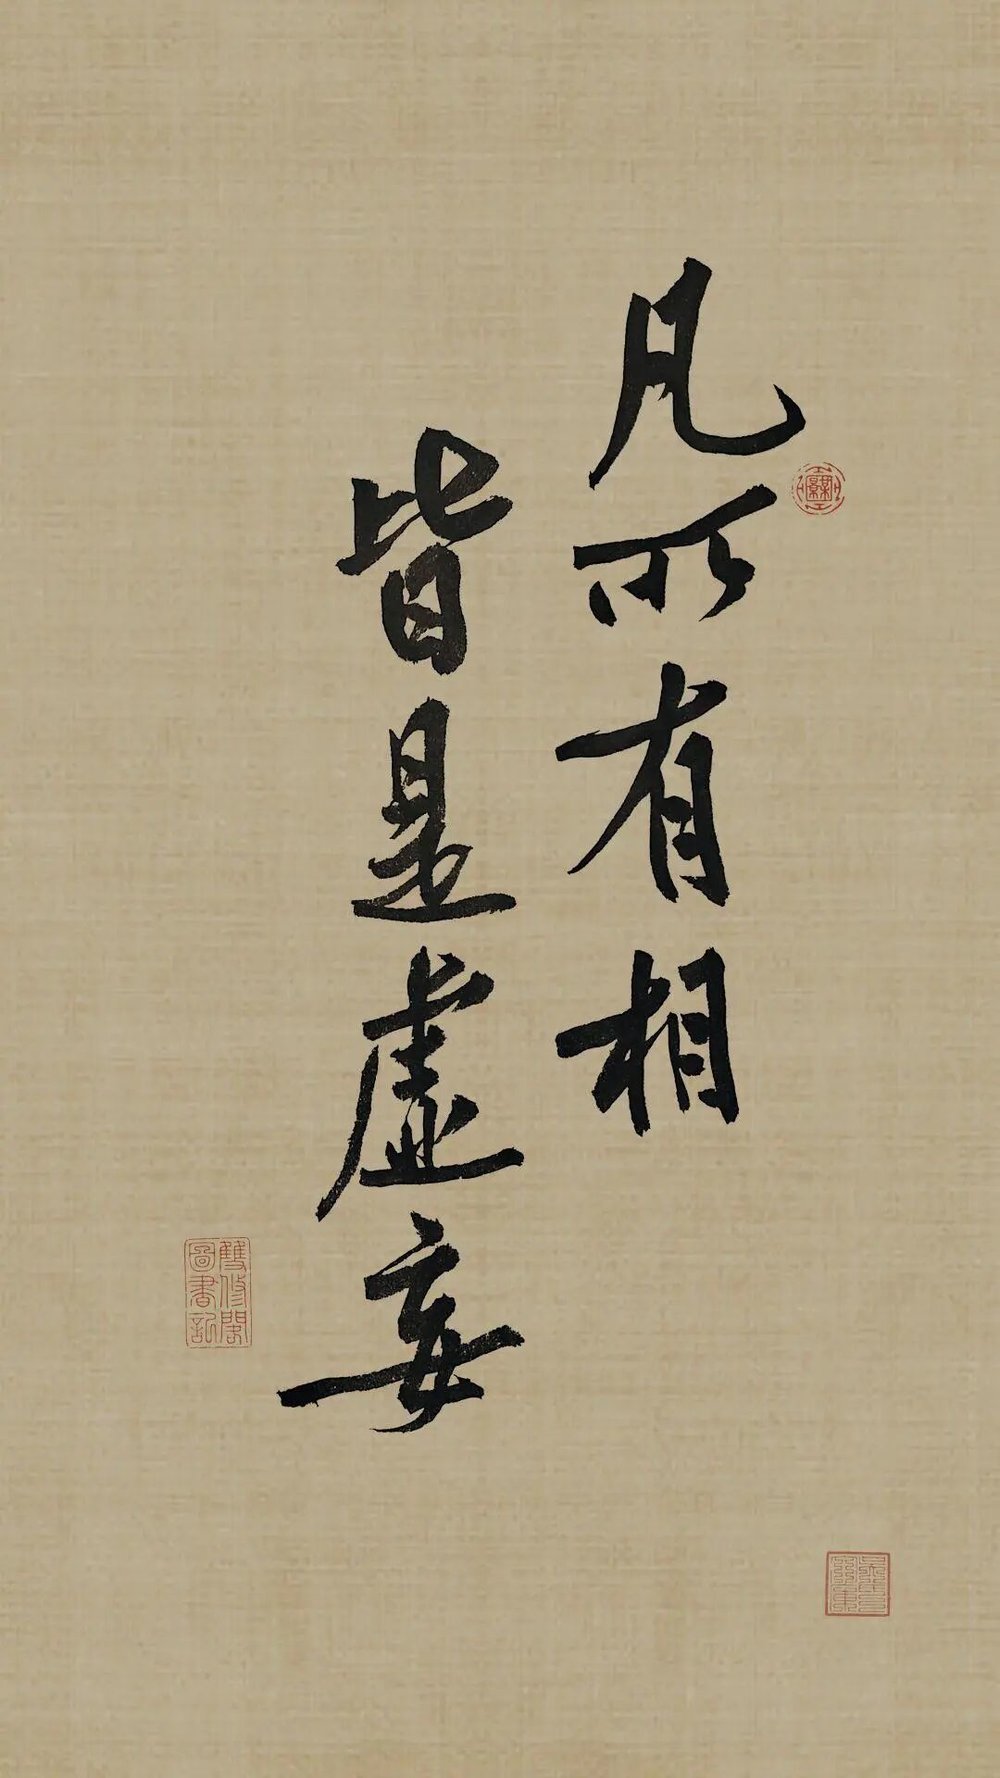 凡所有相
皆是虛妄
雙修閣
圖書記